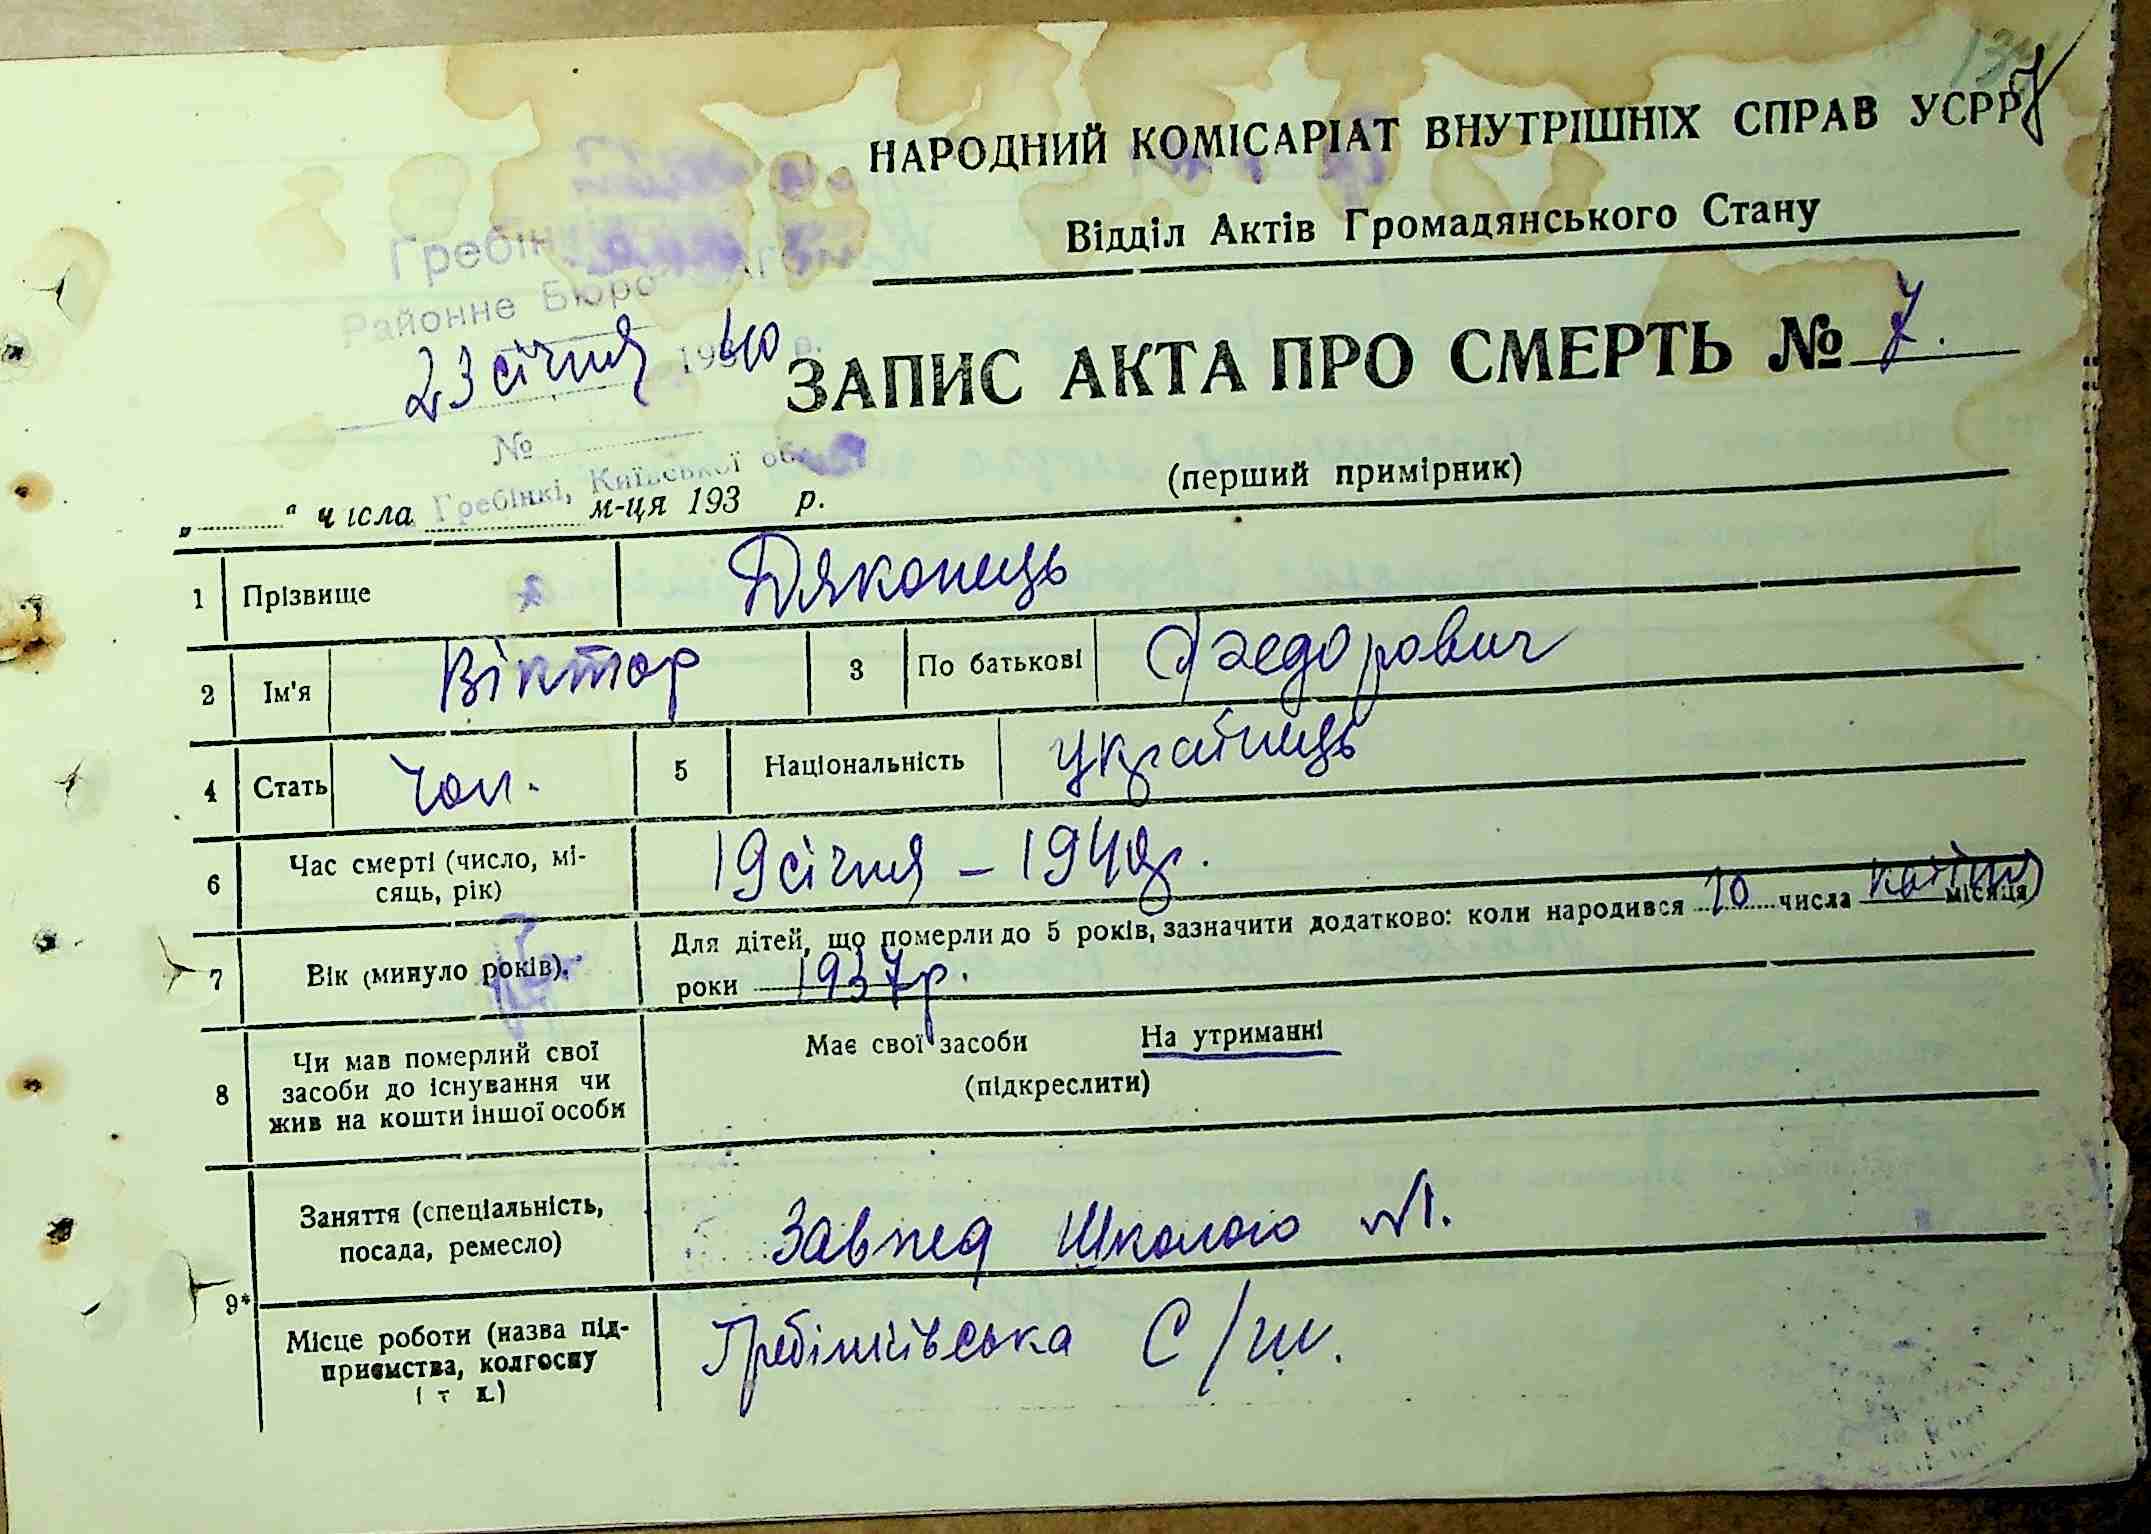 НАРОДНИЙ КОМІСАРІАТ ВНУТРІШНІХ СПРАВ УСРР
Відділ Актів Громадянського Стану
Гребін
Районне Бюро ЗАГС
23 січня 1940 р.
ЗАПИС АКТА ПРО СМЕРТЬ № 7.
№
Гребінкі, Київської обл.
(перший примірник)
„ “ числа м-ця 193 р.
1 Прізвище Дяконець
2 Ім'я Віктор 3 По батькові Федорович
4 Стать чол. 5 Національність українець
6 Час смерті (число, мі-
сяць, рік) 19 січня – 1940р.
7 Вік (минуло років).
Для дітей, що померли до 5 років, зазначити додатково: коли народився 10 числа квітня місяця
роки 1937р.
8 Чи мав померлий свої
засоби до існування чи
жив на кошти іншої особи
Має свої засоби На утриманні
(підкреслити)
9*
Заняття (спеціальність,
посада, ремесло) Завпед Школою №1.
Місце роботи (назва під-
приємства, колгоспу
і т д.) Гребінківська С/ш.